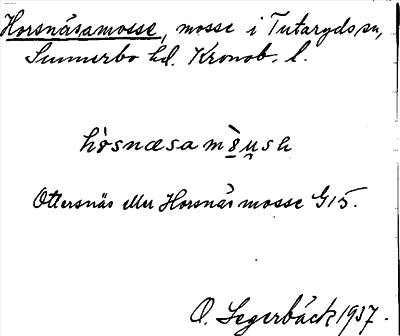 Horsnäsamosse, mosse i Tutaryds sn,
Sunnerbo hd. Kronob. l.
hòsnæsa mò̲u̯sa
Ottersnäs eller Horsnäs mosse G15.
O. Segerbäck 1937.